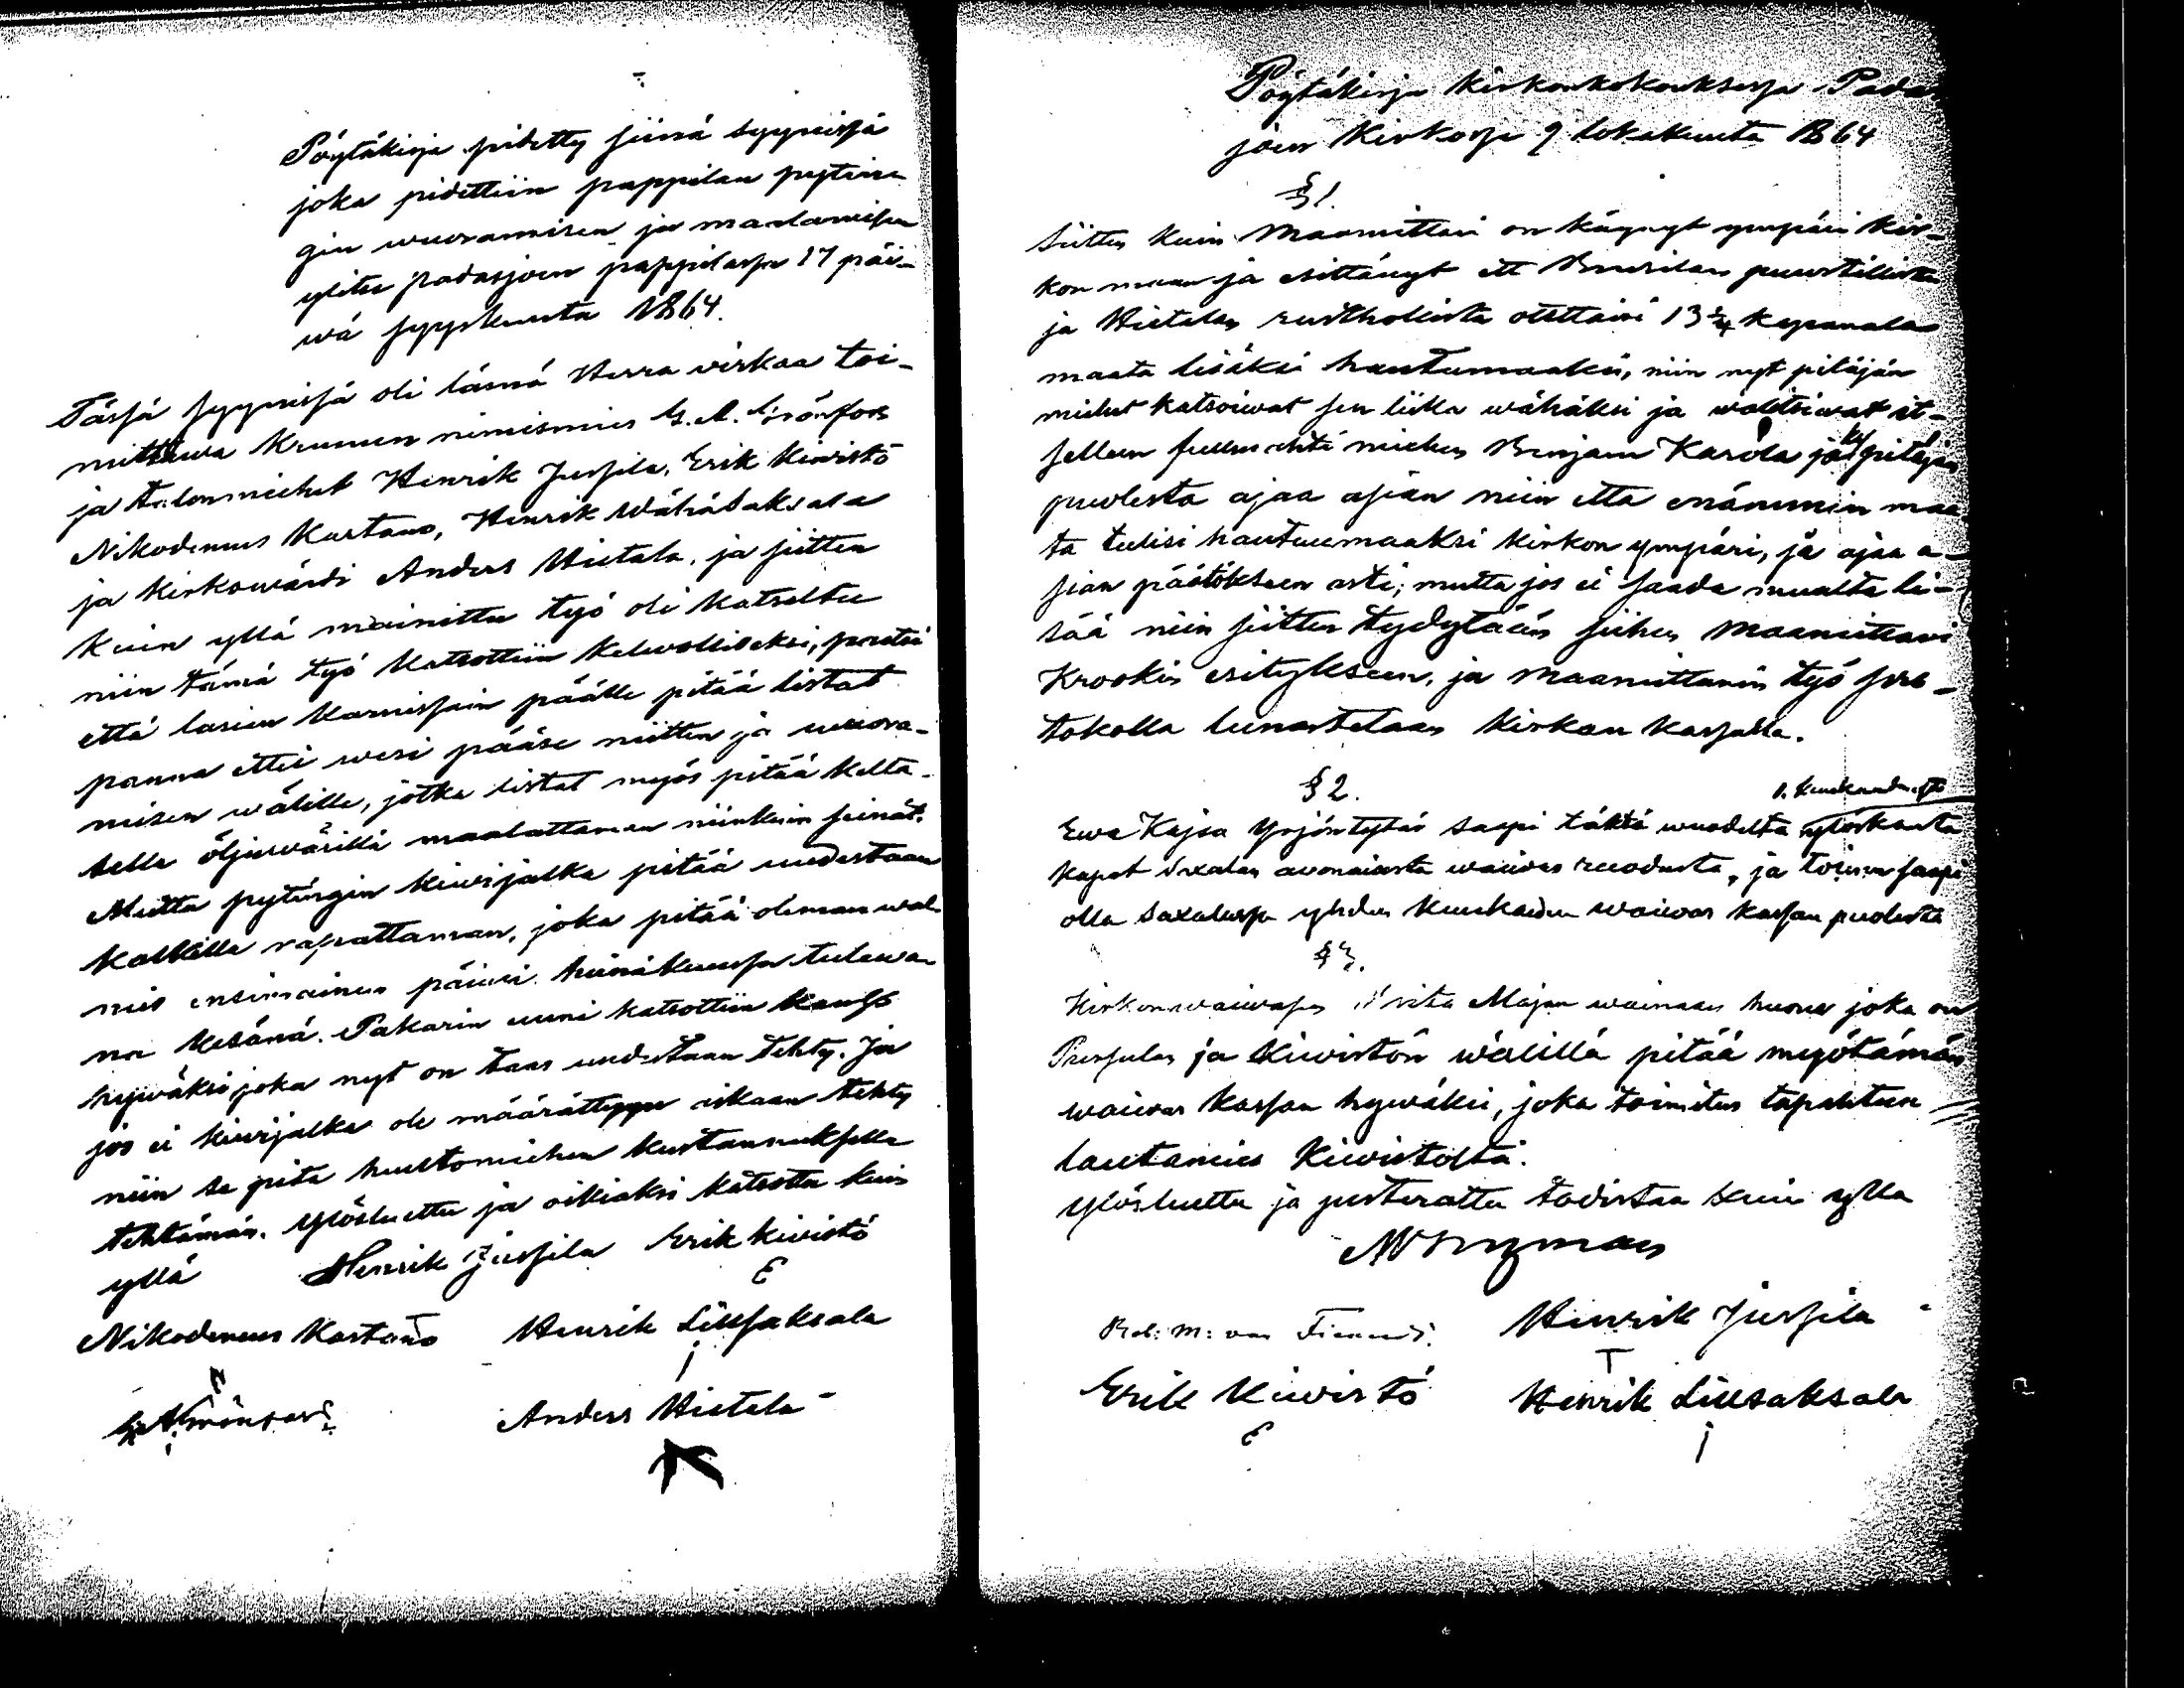 Pöytäkirja pidetty siinä syynissä
joka pidettiin pappilan pytin-
gin wuoraamisen ja maalamisen
ylitse padasjoen pappilassa 17 päi-
wä syyskuuta 1864.
Tässä syynissä oli läsnä Herra wirkaa toi-
mittawa Kruunun nimismies G. A. Grönfors
ja talonmiehet Henrik Jussila, Erik Kiwistö
Nikodemus Kartano, Henrik Wähäsaksala
ja kirkowärdi Anders Hietala, ja sitten
kuin yllä mainittu työ oli katseltu
niin tämä työ katsottiin kelwolliseksi, paitsi
että lasien karnissain päälle pitää listat
panna ettei wesi pääse niitten ja wuora-
misen wälille, jotka listat myös pitää kelta-
sella öljywärillä maalattaman niinkuin seinät.
Mutta pytingin kiwijalka pitää uudestaan
kalkilla rapattaman, joka pitää oleman wal-
mis ensimäinen päiwä heinäkuussa tulewa-
na kesänä. Pakarin uuni katsottiin kanss
hywäksi, joka nyt on taas uudestaan tehty. Ja
jos ei kiwijalka ole määrättyyn aikaan tehty
niin se pitä huutomiehen kustannuksella
tehtämän. Ylösluettu ja oikiaksi katsottu kuin
yllä Henrik Jussila Erik Kiwistö
E
Nikodemus Kartano Henrik Liisaksala
Anders Hietala
Pöytäkirja kirkonkokouksessa Padas-
joen Kirkossa 9 lokakuuta 1864
§ 1.
Siitten kuin Maamittari on käynyt ympäri kir-
kon maan ja esittänyt ett puustellista
ja Hietalan rusthollista otettaisi 13 kapanalaa
maata lisäksi hautumaaksi, niin nyt pitäjän
miehet katsoiwat sen liika wähäksi ja walitsiwat it-
sellen miehen Karola ja pitäjän
puolesta ajaa asian niin etta enämmin maa-
ta tulisi hautuumaaksi kirkon ympäri, ja ajaa a-
sian päätökseen asti; mutta jos ei saada muualta li-
sää niin siitten tydytään siihen Maamittari
Krookin esitykseen, ja Maamittarin työ pro-
tokolla lunastetaan kirkon kassalla.
§ 2.
Ewa Kajsa Yrjöntytär saapi tästä wuodesta
kapat Saxalan awonaisesta waiwas ruodusta, ja toinen saapi
olla Saxalassa yhden kuukauden waiwas kassan puolesta
§ 3.
Kirkonwaiwasen Majan wainaan huone joka on
ja Kiwistön wälillä pitää myötämän
waiwas kassan hywäksi, joka toimitus tapahtuu
lautamies Kiwistöltä.
Ylösluettu ja justerattu todistaa kuin ylla
Henrik Jussila
Erik Kiwistö Henrik Liisaksala
E